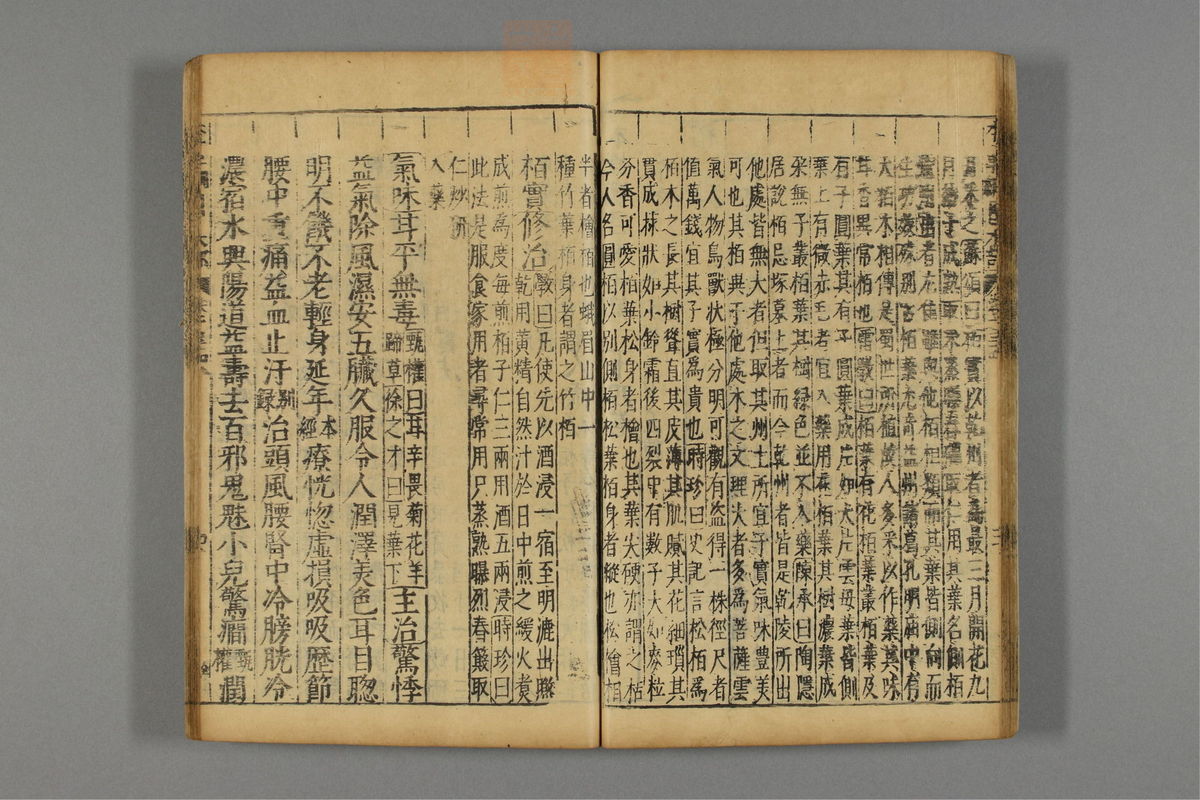 月採之頌曰柏實以乾州者爲最三月開花九
月結子成熟取采蒸曝舂取仁用其葉名側柏
密州出者尤佳雖與他柏相類而其葉皆側向而
生功效殊別古柏葉尤奇益州諸葛孔明廟中有
大柏木相傳是蜀世所植故人多采以作藥其味
甘香異常柏也雷斅曰柏葉有花柏葉叢柏葉及
有子圓葉其有子圓葉成片如大片雲母葉皆側
葉上有微赤毛者宜入藥用花柏葉其樹濃葉成
朵無子叢柏葉其樹綠色並不入藥陳承曰陶隱
居說柏忌塚墓上者而今乾州者皆是乾陵所出
他處皆無大者但取其州土所宜子實氣味豐美
可也其柏異于他處木之文理大者多爲菩薩雲
氣人物鳥獸狀極分明可觀有盜得一株徑尺者
值萬錢宜其子實爲貴也時珍曰史記言松柏爲
百木之長其樹聳直其皮薄其肌膩其花細瑣其
實成梂狀如小鈴霜後四裂中有數子大如麥粒
芬香可愛柏葉松身者檜也其葉尖硬亦謂之栝
今人名圓柏以別側柏松葉柏身者樅也松檜相
半者檜柏也峨眉山中一
種竹葉柏身者謂之竹柏
柏實修治斅曰凡使先以酒浸一宿至明漉出曬
乾用黃精自然汁於日中煎之緩火煮
成煎爲度每煎柏子仁三兩用酒五兩浸時珍曰
此法是服食家用者尋常用只蒸熟曝烈舂簸取
仁炒研
入藥
氣味甘平無毒甄權曰甘辛畏菊花羊
蹄草徐之才曰見葉下主治驚悸
益氣除風濕安五臟久服令人潤澤美色耳目聰
明不飢不老輕身延年本
經療恍惚虛損吸吸歷節
腰中重痛益血止汗別
錄治頭風腰腎中冷膀胱冷
濃宿水興陽道益壽去百邪鬼魅小兒驚癇甄
權潤